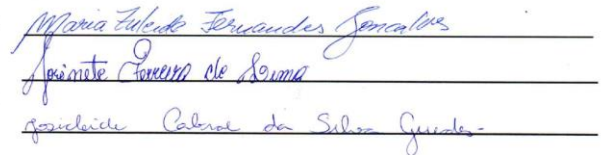 Maria Zuleide Fernandes Gonçalves
Josinete Ferreira de Lima
Josicleide Cabral da Silva Guedes